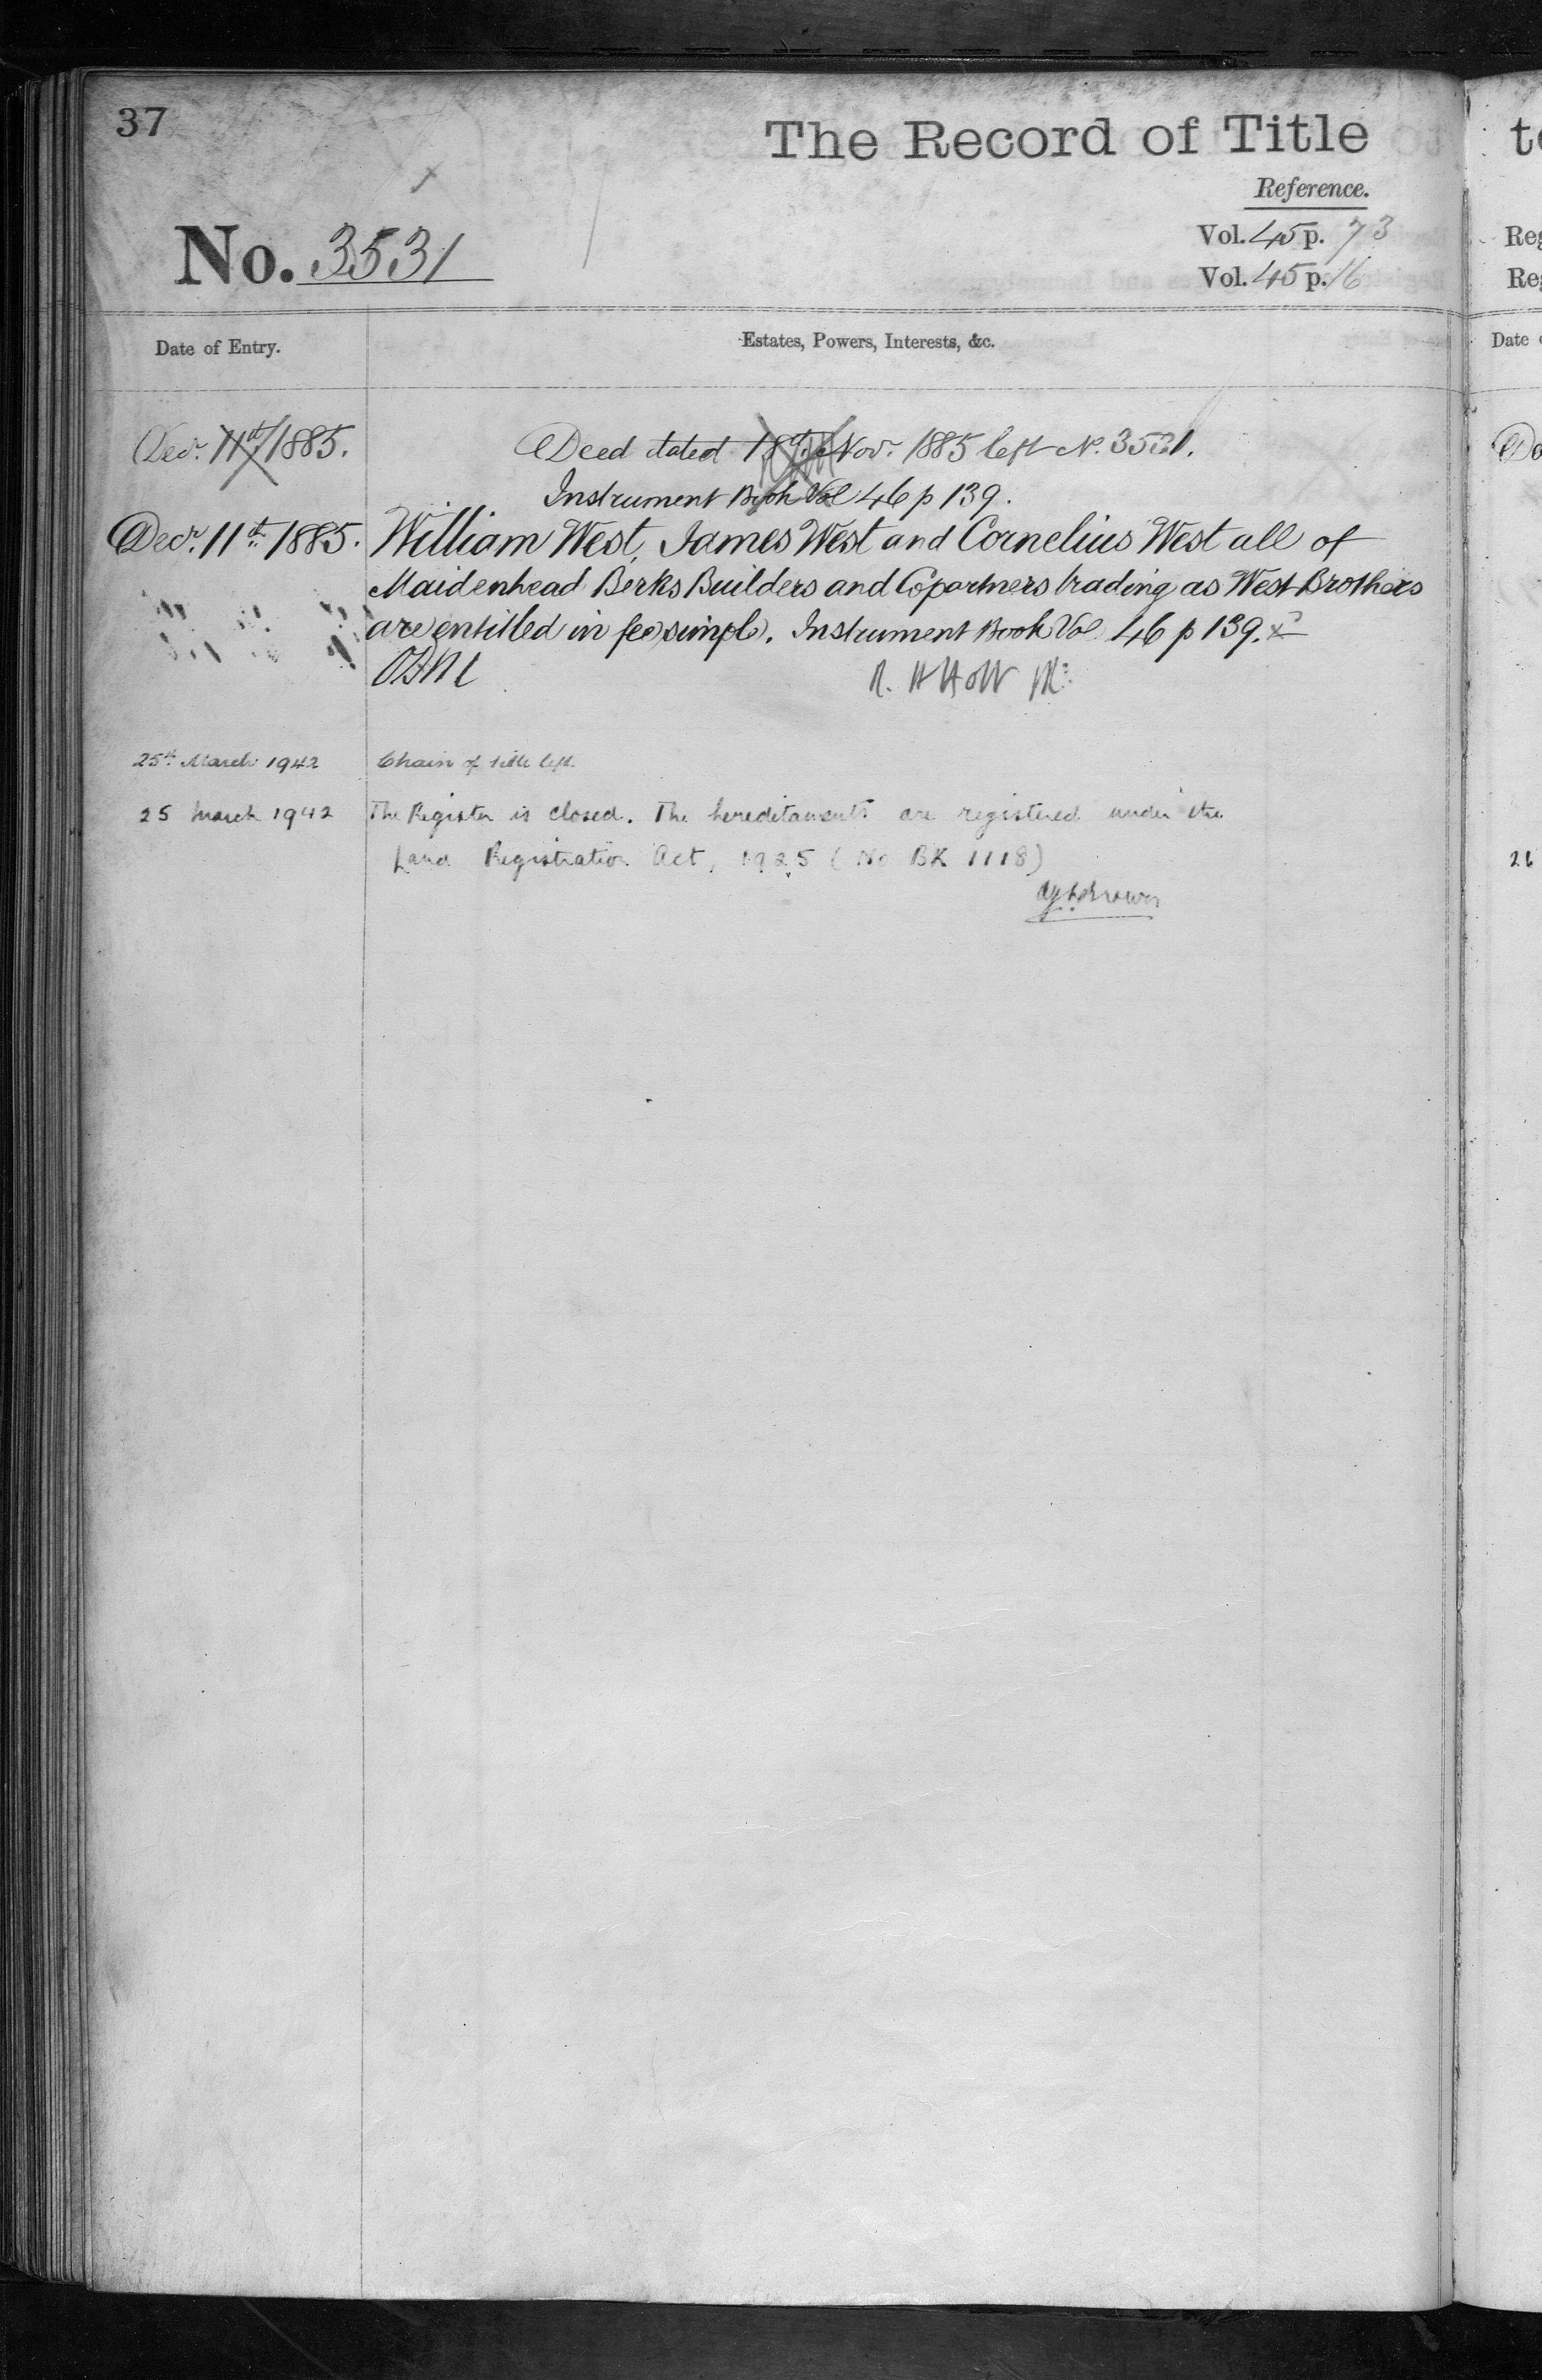 37
The Record of Title
Reference.
No. 3531
Vol. 45 p. 73
Vol. 45 p. 16
Date of Entry.
Estates, Powers, Interests, &c.
Decr. 11th 1885.
Deed dated 18th Novr. 1885 left No. 3531.
Instrument Book Vol 46 p 139.
Decr. 11th 1885.
William West, James West and Cornelius West all of
Maidenhead Berks Builders and Copartners trading as West Brothers
are entitled in fee simple. Instrument Book Vol 46 p 139.
25th March 1942
Chain of title left.
25 March 1942
The Register is closed. The hereditaments are registered under the
Land Registration Act, 1925 (No BK 1118)